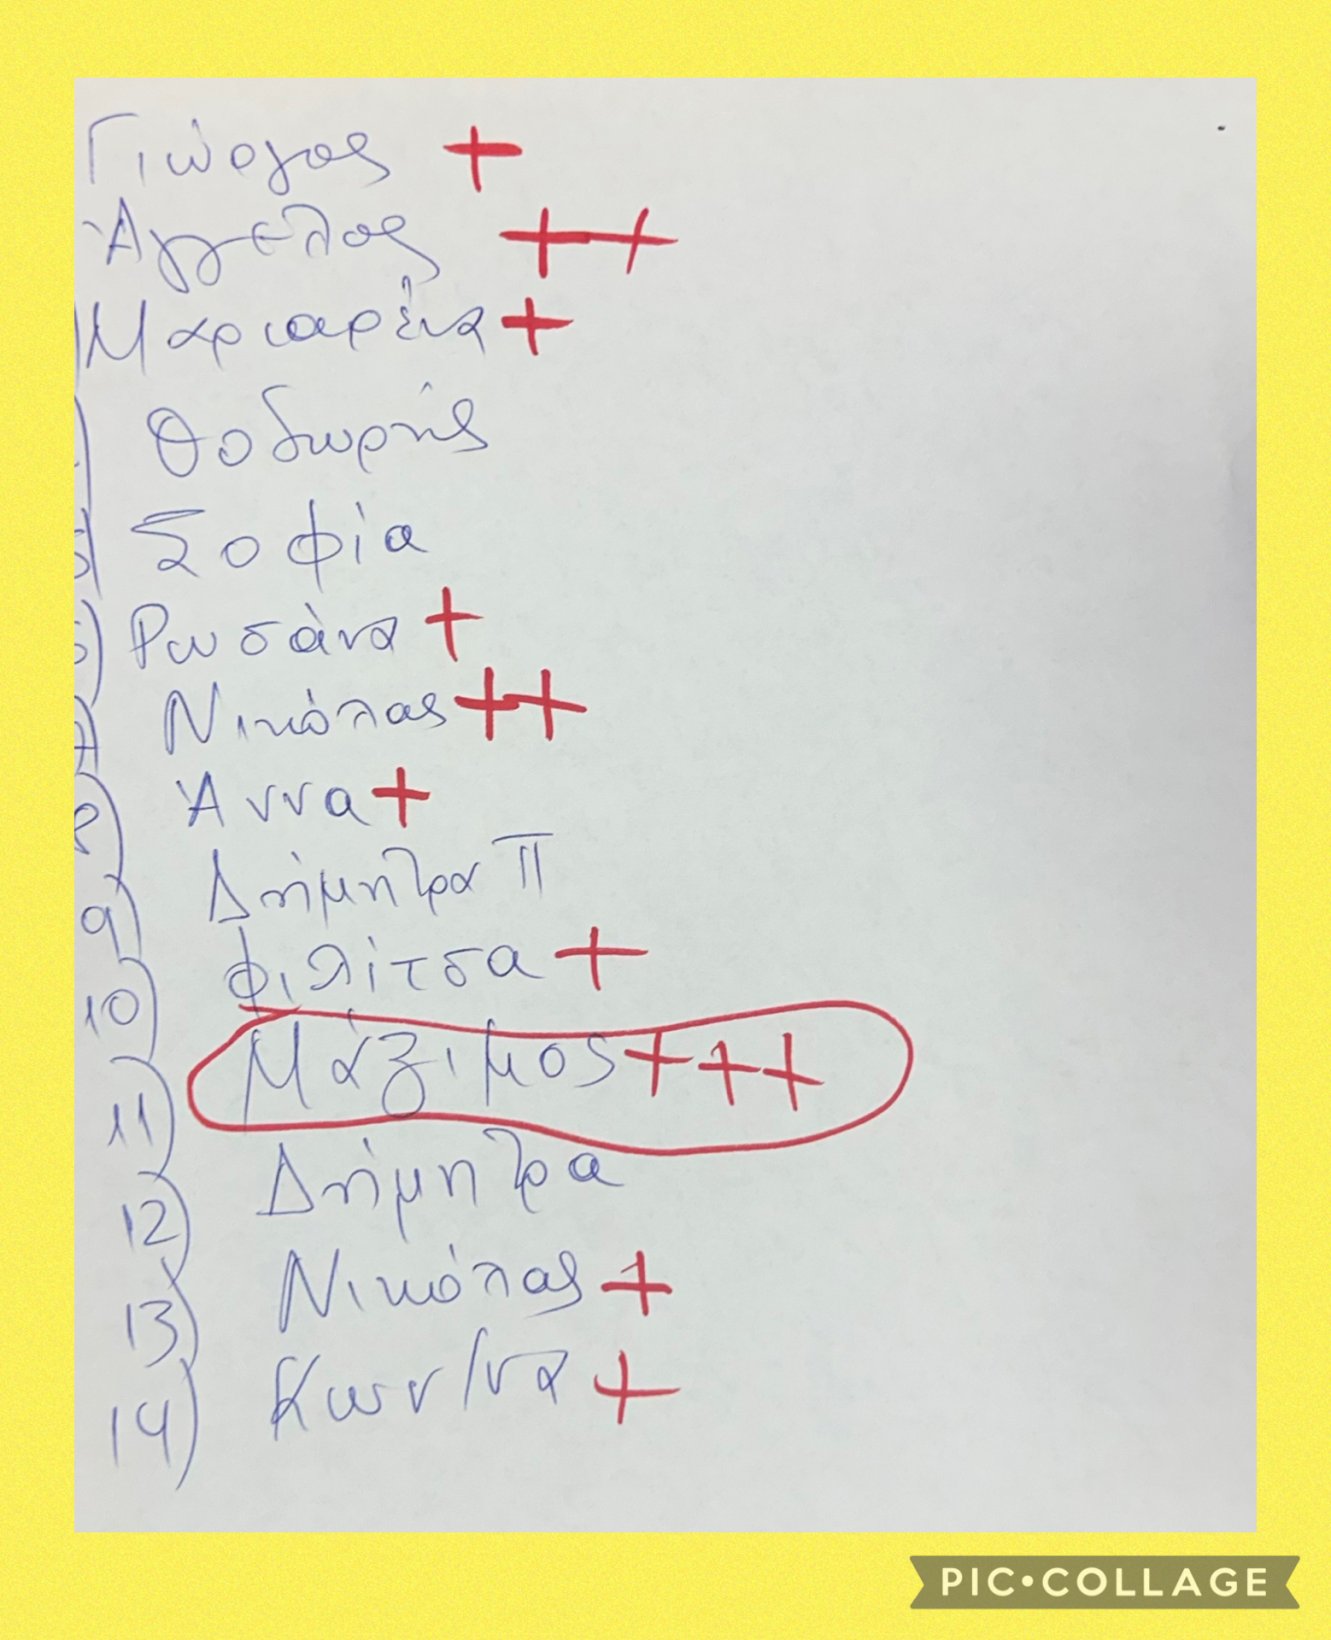 Γιώργος +
Άγγελος ++
Μαριαρένα +
Θοδωρής
5) Σοφία
6) Ρωσάνα +
7) Νικόλας ++
8) Άννα +
9) Δήμητρα Π
10) Φιλίτσα +
11) Μάξιμος +++
12) Δήμητρα
13) Νικόλας +
14) Κων/να +
PIC•COLLAGE